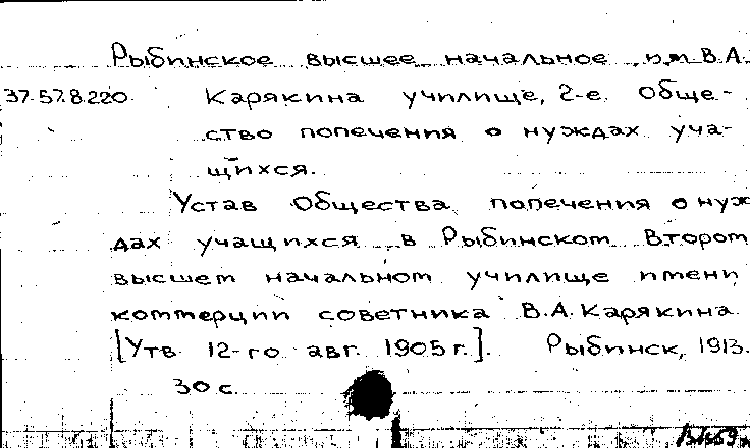 Рыбинское высшее начальное им В.А.
37.57.8.220. Карякина училище, 2-е. Обще-
ство попечения о нуждах уча-
щихся.
Устав Общества попечения о нуж
дах учащихся в Рыбинском Втором
высшем начальном училище имени
коммерции советника В.А. Карякина
[Утв. 12-го авг. 1905 г.]. Рыбинск, 1913.
30 с.